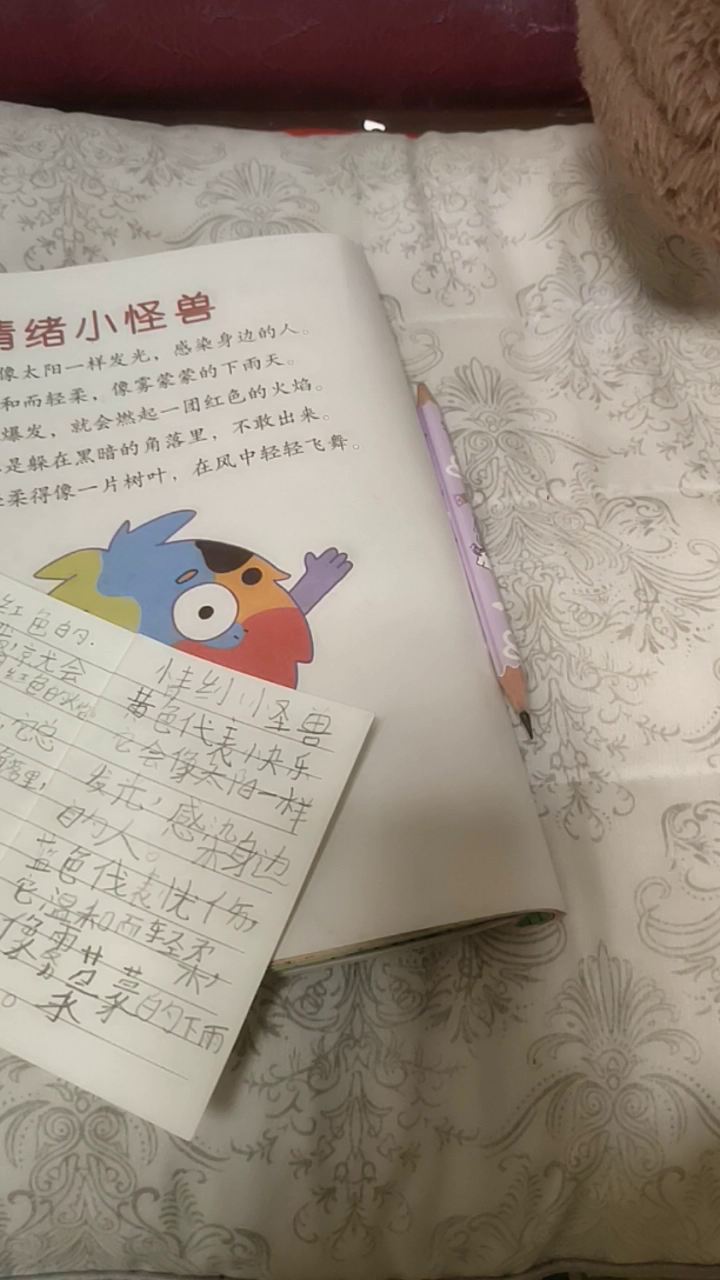 情绪小怪兽
像太阳一样发光，感染身边的人。
和而轻柔，像雾蒙蒙的下雨天。
爆发，就会燃起一团红色的火焰。
是躲在黑暗的角落里，不敢出来。
柔得像一片树叶，在风中轻轻飞舞。
红色的.
就会
红色的火焰
，它总
落里，
情绪小怪兽
黄色代表快乐
它会像太阳一样
发光，感染身边
的人。
蓝色代表忧伤，
它温和而轻柔
像雾蒙蒙的下雨
。